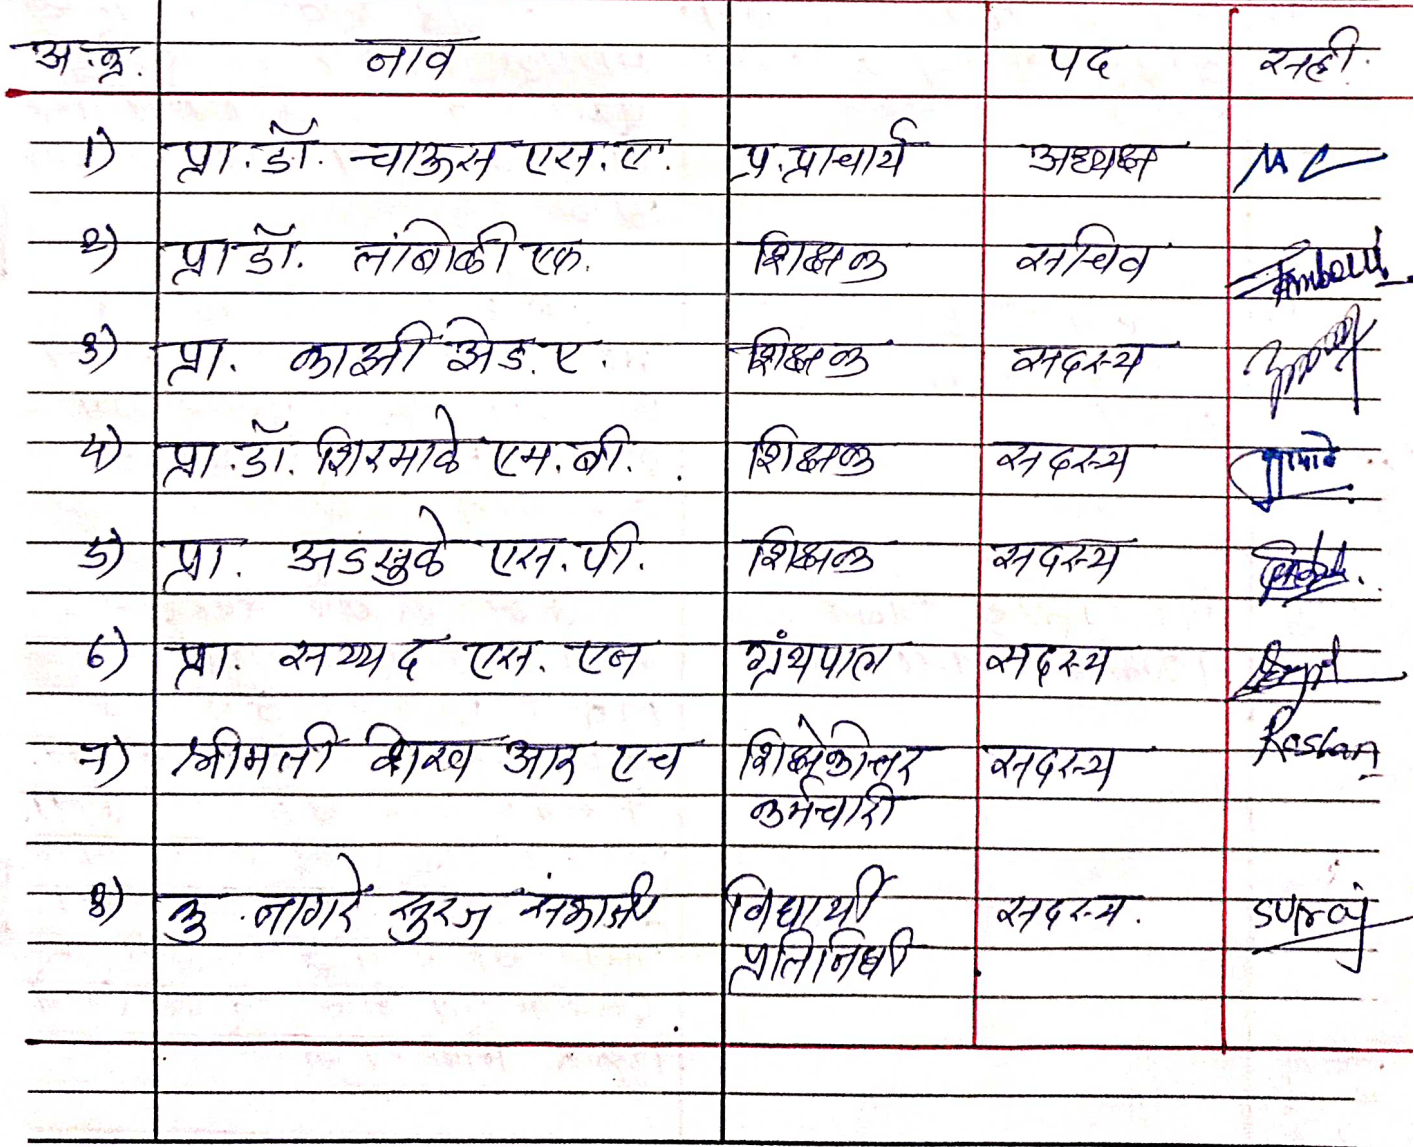 अ.क्र. नाव पद सही.
1) प्रा.डॉ. चाऊस एस.ए. प्र.प्राचार्य अध्यक्ष
2) प्रा डॉ. तांबोळी एफ. शिक्षक सचिव Tamboli
3) प्रा. काझी झेड.ए. शिक्षक सदस्य
4) प्रा.डॉ. शिरमाळे एम.बी. शिक्षक सदस्य
5) प्रा. अडसुळे एस.पी. शिक्षक सदस्य
6) प्रा. सय्यद एस. एन ग्रंथपाल सदस्य
7) श्रीमती शेख आर एच शिक्षकेत्तर सदस्य
कर्मचारी
8) कु. नागरे सुरज विद्यार्थी सदस्य. suraj
प्रतिनिधी